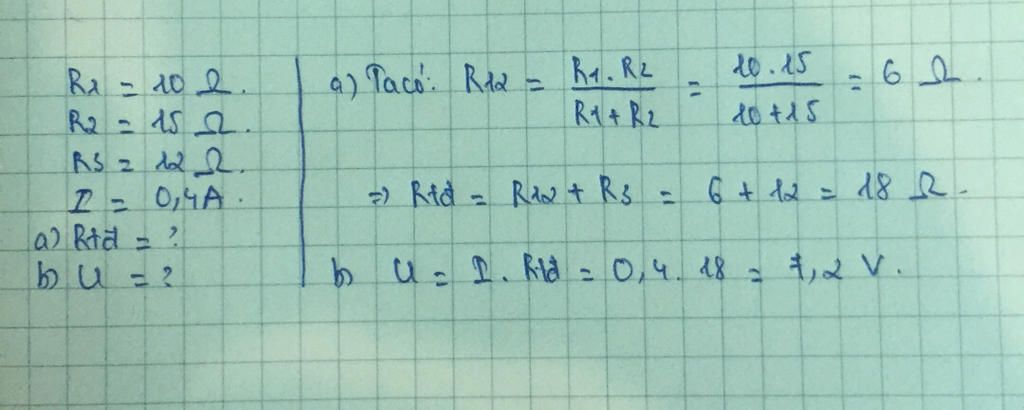 R1 = 10 Ω.
R2 = 15 Ω.
R3 = 12 Ω.
I = 0,4A.
a) Rtđ = ?
b) U = ?
a) Ta có: R12 = R1.R2 / R1+R2 = 10.15 / 10+15 = 6 Ω.
=> Rtđ = R12 + R3 = 6 + 12 = 18 Ω.
b) U = I. Rtđ = 0,4. 18 = 7,2 V.